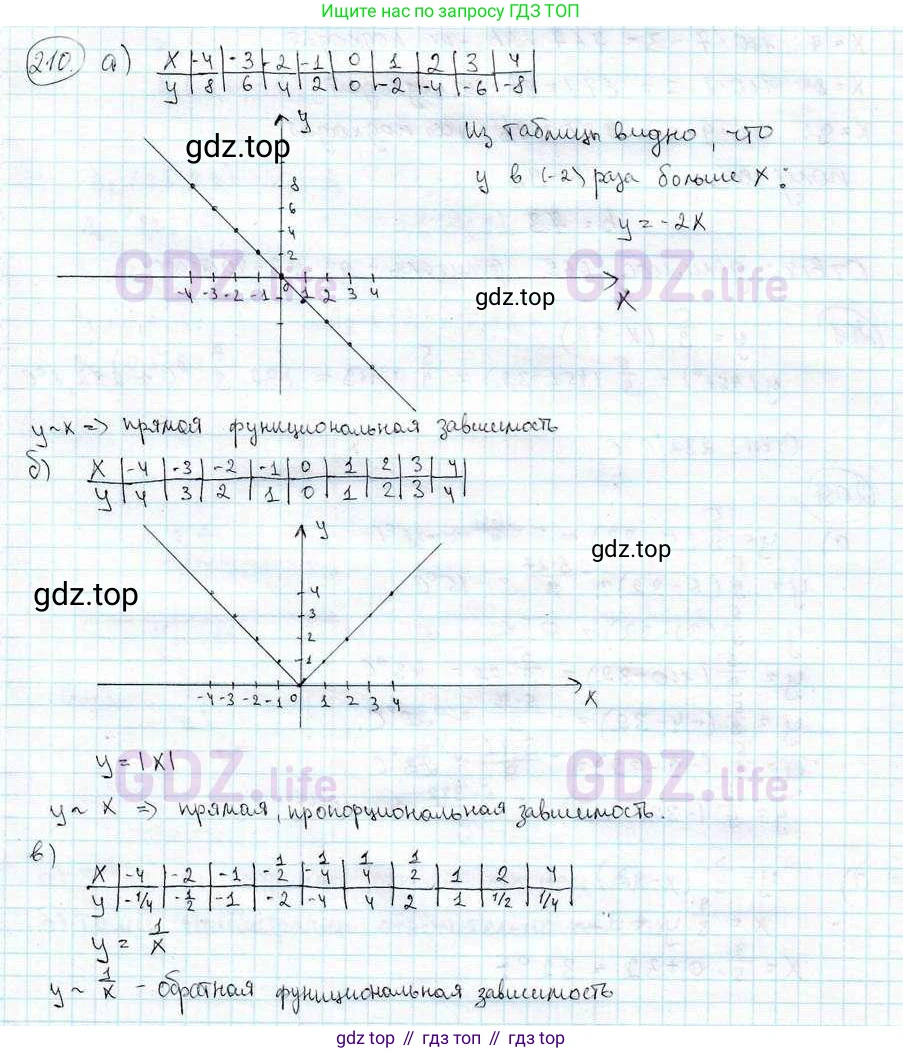 Ищите ответы по запросу ГДЗ ТОП
210. а) x | -4 | -3 | -2 | -1 | 0 | 1 | 2 | 3 | 4
y | 8 | 6 | 4 | 2 | 0 | -2 | -4 | -6 | -8
y
gdz.top
Из таблицы видно, что
y в (-2) раза больше x:
y = -2x
8
6
4
2
GDZ.life
GDZ.life
-4 -3 -2 -1 0 1 2 3 4
gdz.top
x
y ~ x => прямая функциональная зависимость
б) x | -4 | -3 | -2 | -1 | 0 | 1 | 2 | 3 | 4
y | 4 | 3 | 2 | 1 | 0 | 1 | 2 | 3 | 4
y
gdz.top
gdz.top
4
3
2
1
-4 -3 -2 -1 0 1 2 3 4
x
y = |x|
GDZ.life
GDZ.life
y ~ x => прямая, пропорциональная зависимость.
в)
x | -4 | -2 | -1 | -1/2 | -1/4 | 1/4 | 1/2 | 1 | 2 | 4
y | -1/4 | -1/2 | -1 | -2 | -4 | 4 | 2 | 1 | 1/2 | 1/4
y = 1/x
y ~ 1/x - обратная функциональная зависимость
gdz.top // гдз топ // гдз.top